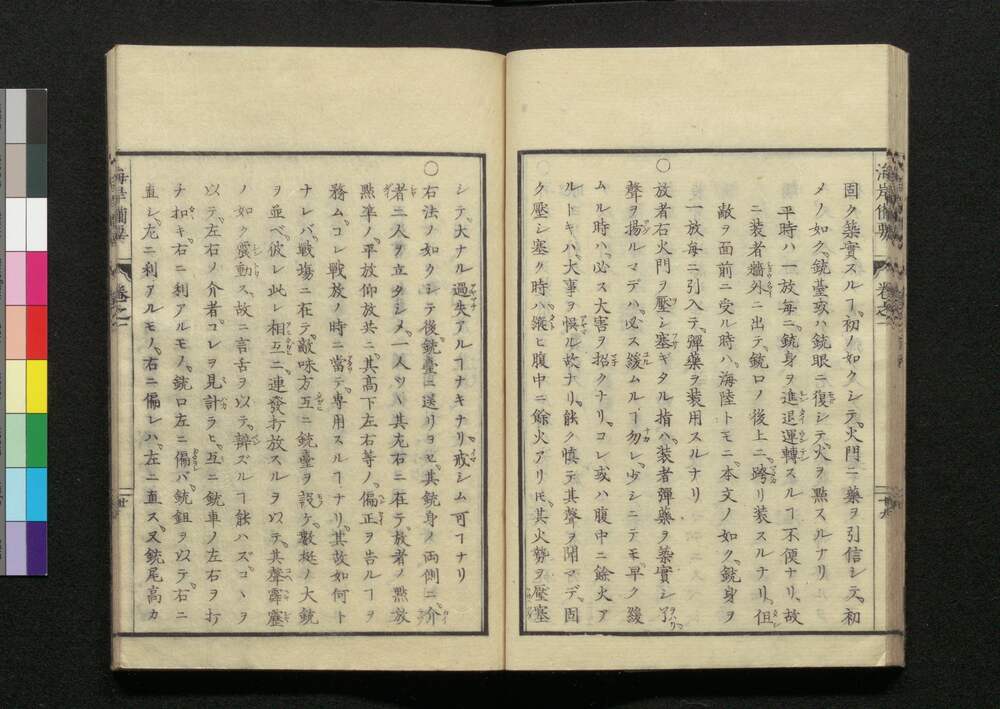 海岸備要
卷之一
固ク築實スルヿ初ノ如クシテ火門ニ藥ヲ引信シテ初
メノ如ク銃臺或ハ銃眼ニ復シテ火ヲ點スルナリ
平時ハ一放每ニ銃身ヲ進退運轉スルヿ不便ナリ故
ニ装者牆外ニ出テ銃口ノ後上ニ跨リ装スルナリ但
敵ヲ面前ニ受ル時ハ海陸トモニ本文ノ如ク銃身ヲ
一放每ニ引入テ彈藥ヲ装用スルナリ
○放者石火門ヲ壓シ塞ギタル指ハ装者彈藥ヲ築實シ了
聲ヲ揚ルマデハ必ス緩ムルヿ勿レ少シニテモ早ク緩
ムル時ハ必ス大害ヲ招クナリコレ或ハ腹中ニ餘火ア
ルトキハ大事ヲ悞ル故ナリ能ク慎テ其聲ヲ聞マデ固
ク壓シ塞ク時ハ縱ヒ腹中ニ餘火アリ𪜈其火勢ヲ壓塞
シテ大ナル過失アルヿナキナリ戒シム可ヿナリ
○右法ノ如クシテ後銃臺ニ送リヨセ其銃身ノ兩側ニ介
者二人ヲ立タシメ一人ツヽ其左右ニ在テ放者ノ點放
點準ノ平放仰放共ニ其高下左右等ノ偏正ヲ告ルヿヲ
務ムコレ戰放ノ時ニ當テ専用スルヿナリ其故如何ト
ナレバ戰場ニ在テ敵味方互ニ銃臺ヲ設ケ數梃ノ大銃
ヲ並ベ彼レ此レ相互ニ連發打放スルヲ以テ其聲霹靂
ノ如ク震動ス故ニ言舌ヲ以テ辨ズルヿ能ハズコヽヲ
以テ左右ノ介者コレヲ見計ラヒ互ニ銃車ノ左右ヲ打
チ扣キ右ニ利アルモノ銃口左ニ偏バ銃鉏ヲ以テ右ニ
直シ左ニ利アルモノ右ニ偏レハ左ニ直ス又銃尾高カ
海岸備要
卷之一